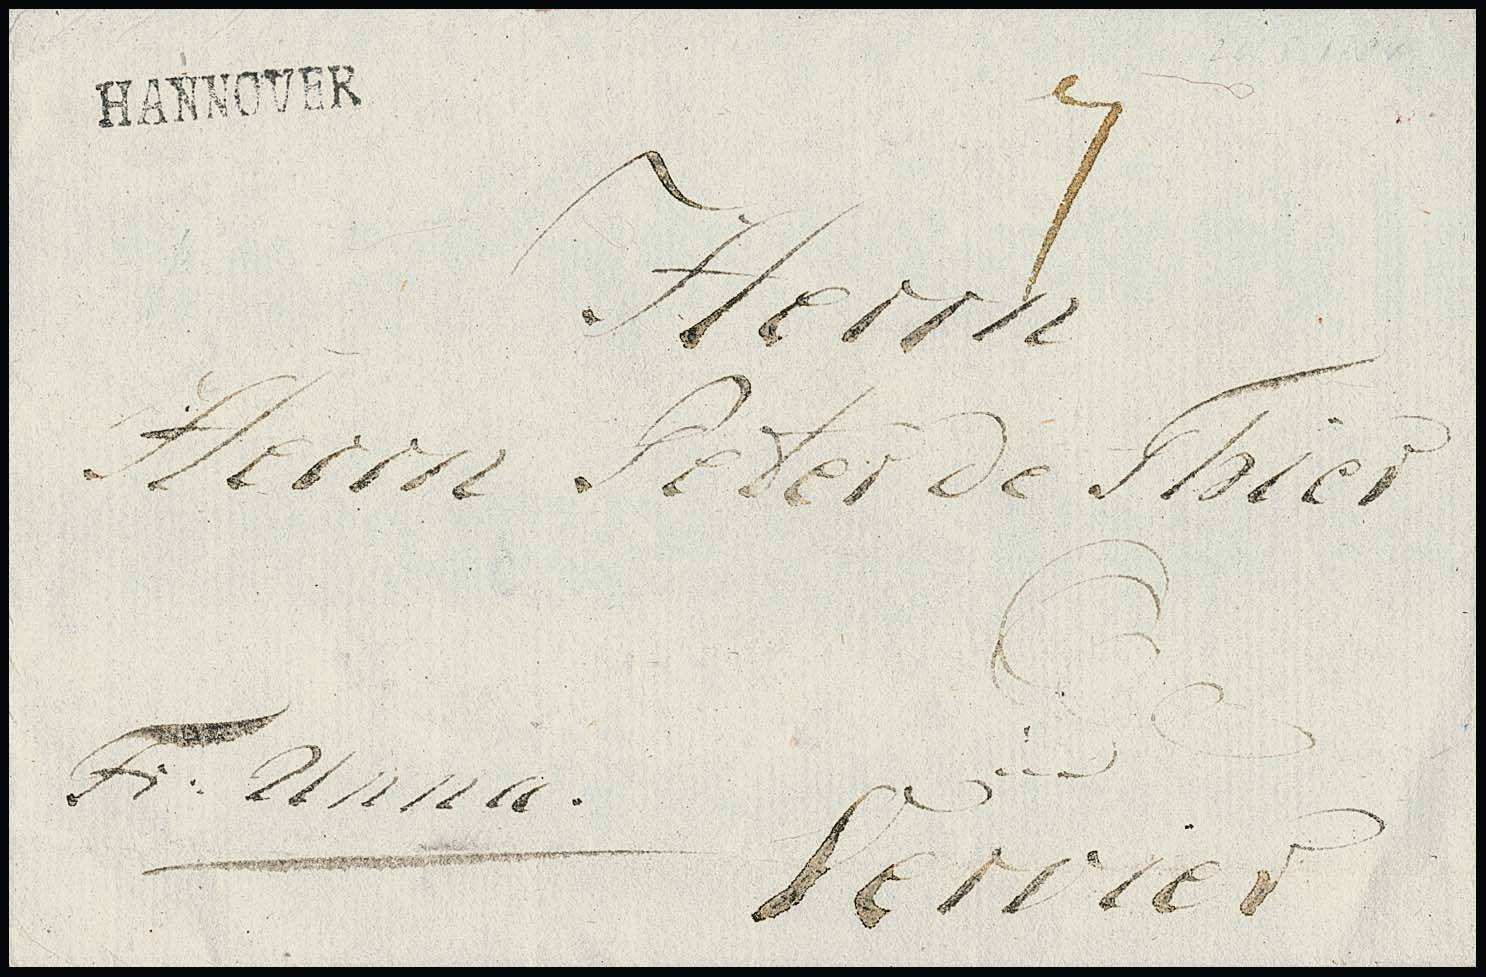 HANNOVER
7
Herrn
Herrn Peter de Thier
in
Fr. Unna.
Vervier